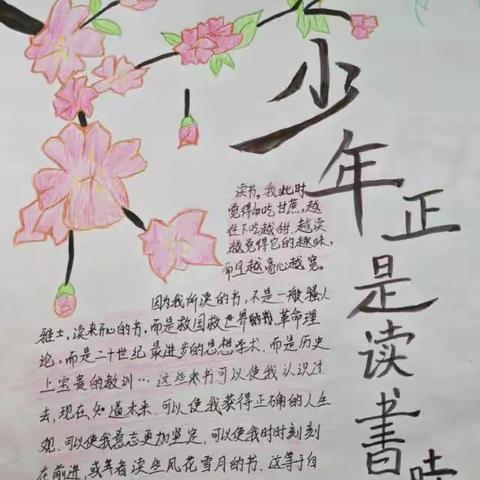 少年正是读书时
读书。我此时
觉得如吃甘蔗,越
往下吃越甜,越读
越觉得它的趣味,
而且越亮心越宽。
因为我所读的书,不是一般骚人
雅士,读来开心的书,而是救国救世界的革命理
论,而是二十世纪最进步的思想学术,而是历史
上宝贵的教训…这些书可以使我认识过
去,现在,知道未来,可以使我获得正确的人生
观,可以使我意志更加坚定,可以使我时时刻刻
在前进,或等者读些风花雪月的书,这等于白